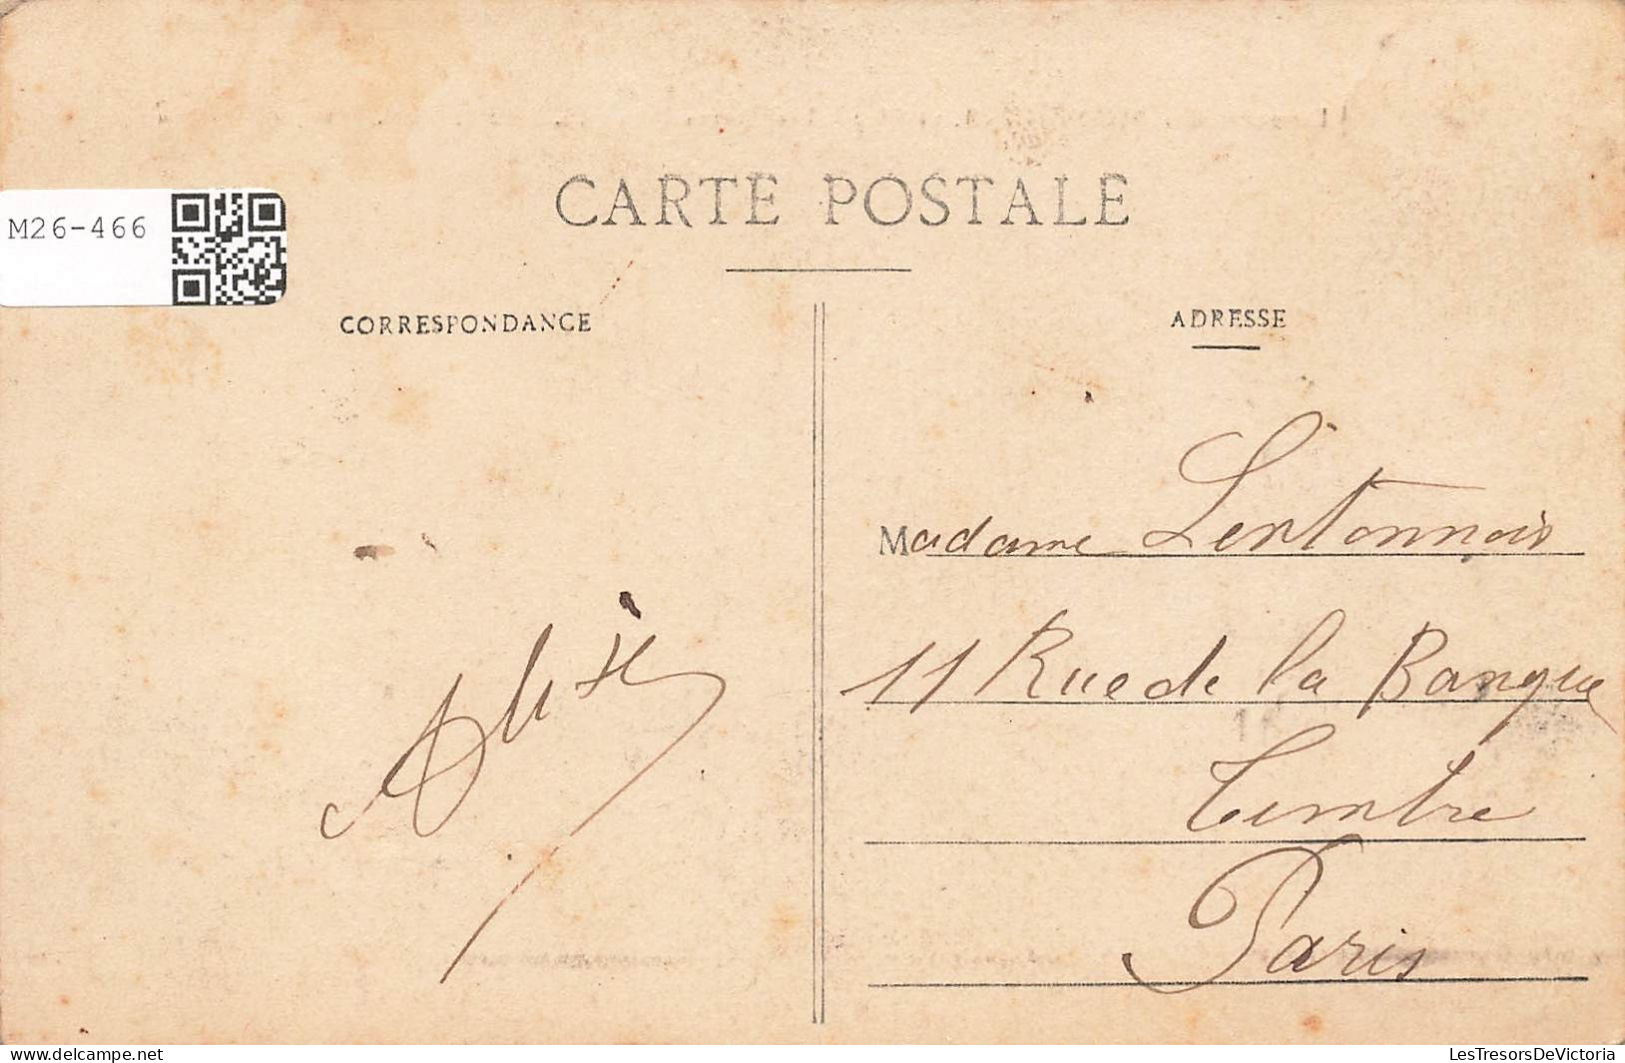 CARTE POSTALE
M26-466
CORRESPONDANCE
ADRESSE
Madame Lentonnois
11 Rue de la Banque
Timbre
Paris
Alix
www.delcampe.net
LesTresorsDeVictoria